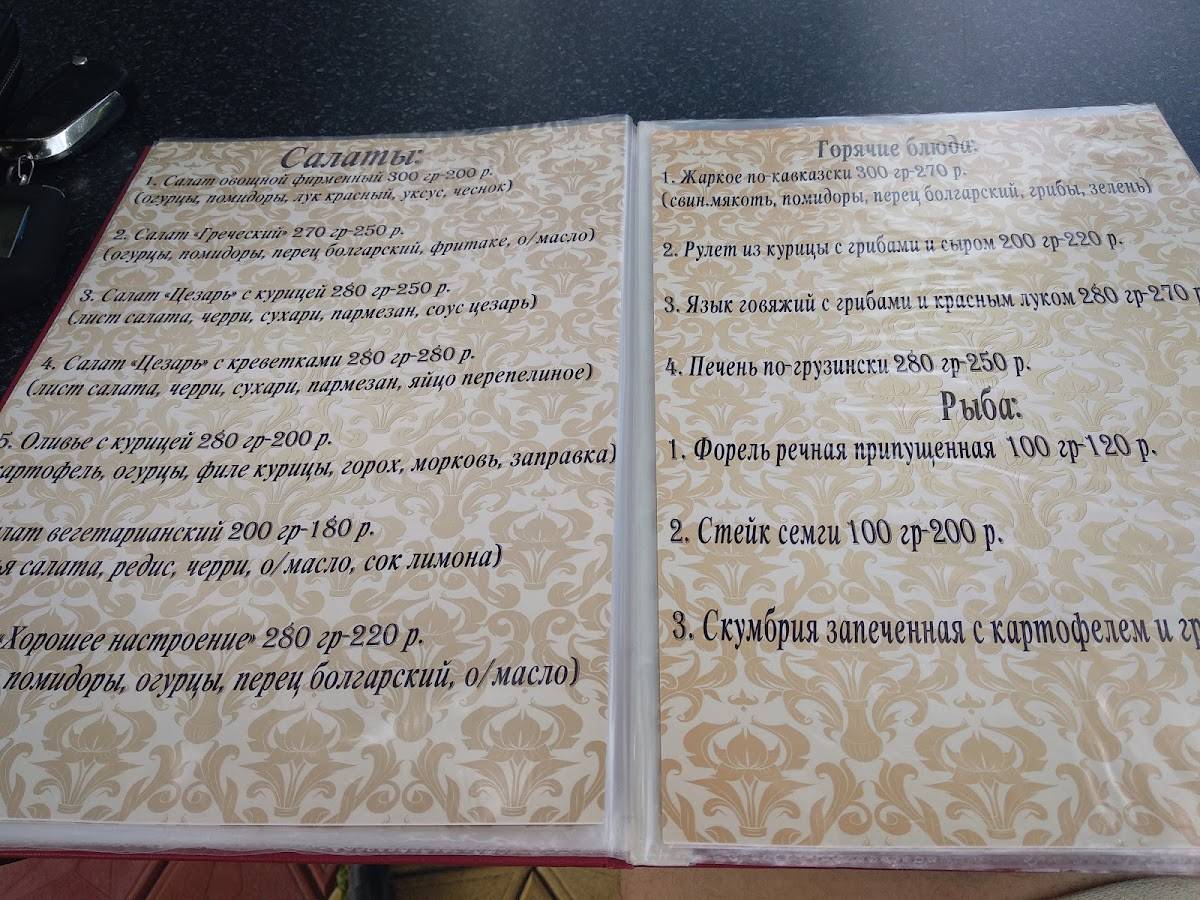 Салаты:
1. Салат овощной фирменный 300 гр-200 р.
(огурцы, помидоры, лук красный, уксус, чеснок)
2. Салат «Греческий» 270 гр-250 р.
(огурцы, помидоры, перец болгарский, фритаке, о/масло)
3. Салат «Цезарь» с курицей 280 гр-250 р.
(лист салата, черри, сухари, пармезан, соус цезарь)
4. Салат «Цезарь» с креветками 280 гр-280 р.
(лист салата, черри, сухари, пармезан, яйцо перепелиное)
5. Оливье с курицей 280 гр-200 р.
картофель, огурцы, филе курицы, горох, морковь, заправка)
вегетарианский 200 гр-180 р.
салата, редис, черри, о/масло, сок лимона)
«Хорошее настроение» 280 гр-220 р.
помидоры, огурцы, перец болгарский, о/масло)
Горячие блюда:
1. Жаркое по-кавказски 300 гр-270 р.
(свин.мякоть, помидоры, перец болгарский, грибы, зелень)
2. Рулет из курицы с грибами и сыром 200 гр-220 р.
3. Язык говяжий с грибами и красным луком 280 гр-270 р
4. Печень по-грузински 280 гр-250 р.
Рыба:
1. Форель речная припущенная 100 гр-120 р.
2. Стейк семги 100 гр-200 р.
3. Скумбрия запеченная с картофелем и